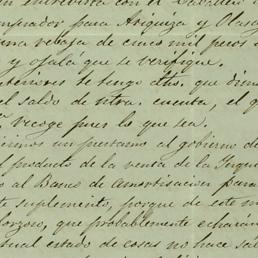 entrevista con el Caballero
comprador para Ariqueza y Olasg
una rebaja de cinco mil pesos
y ojalá que se verifique.
anteriores te tengo dho. que
el saldo de ntra. cuenta, el q
recoge pues lo que sea.
hicimos un prestamo al gobierno de
el producto de la venta de la
al Banco de amortisacion para
te suplemento, porque de este
forzoso, que probablemente echarán
tual estado de cosas no hace